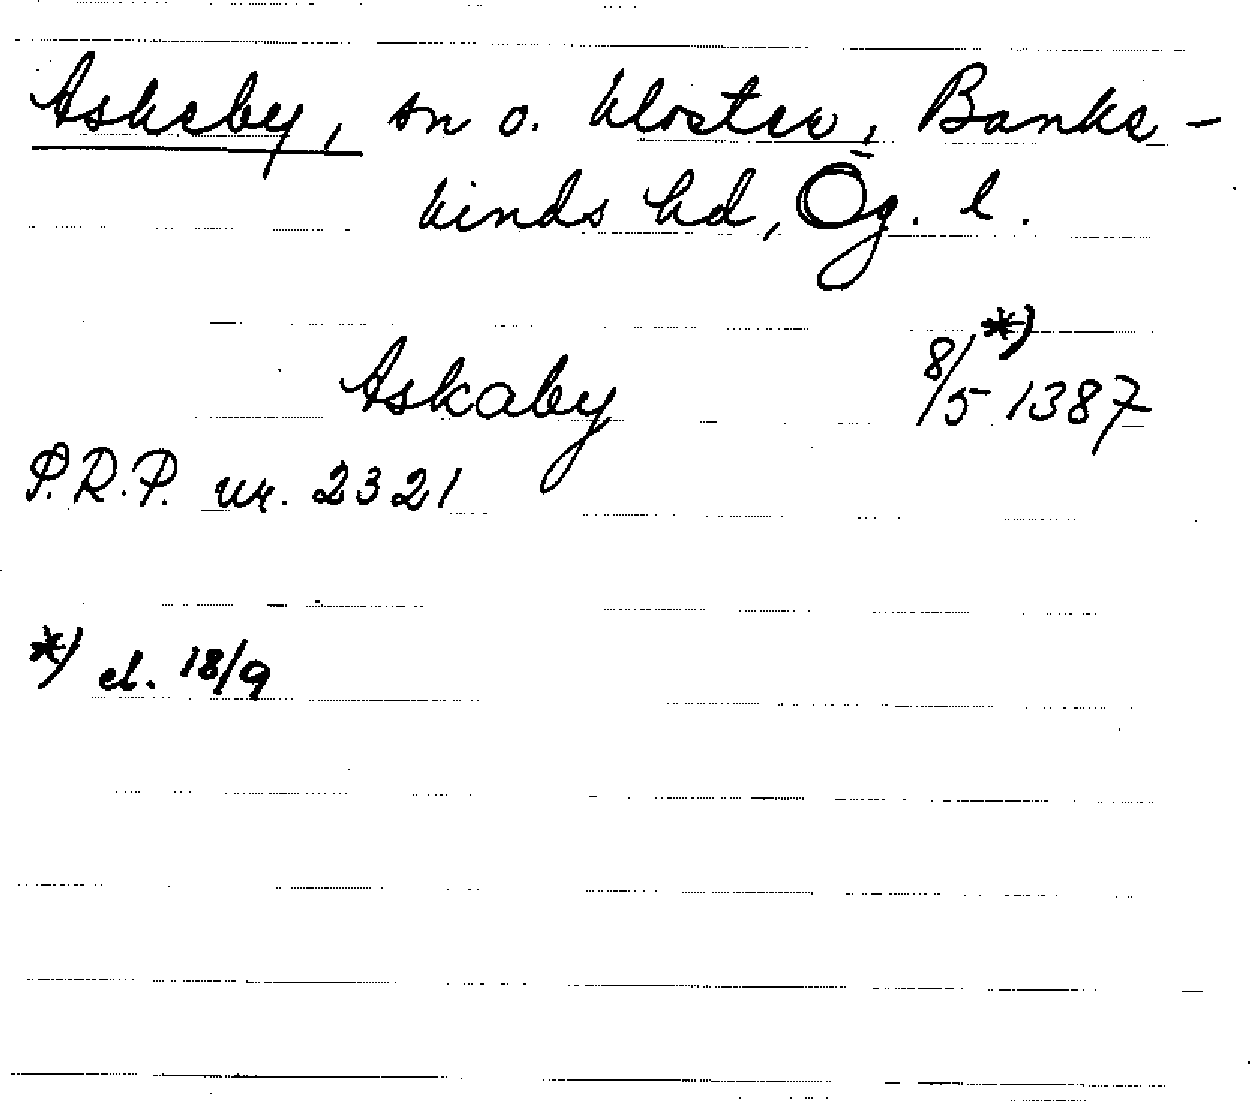 Askeby, sn o. kloster, Banke-
kinds hd, Ög. l.
*)
Askaby 8/5 1387
P.R.P. nr. 2321
*) el. 18/9